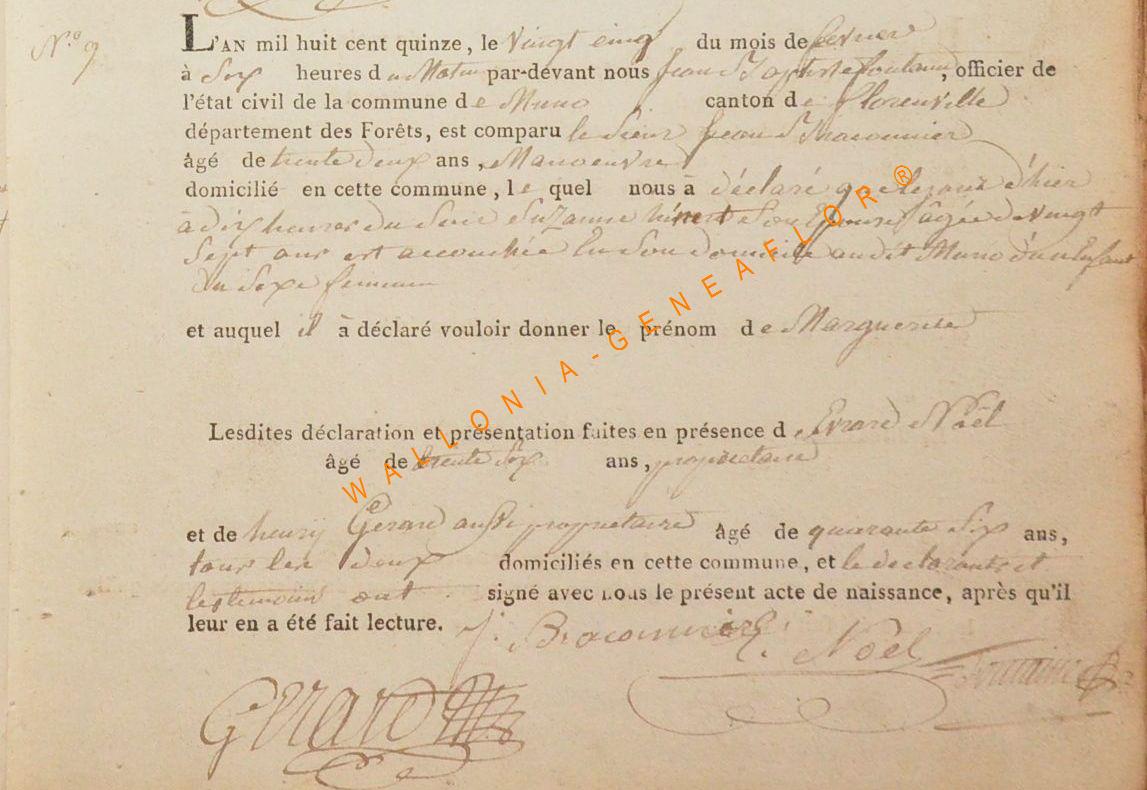 N.º 9
L'AN mil huit cent quinze, le vingt cinq du mois de fevrier
à Six heures du Matin par-devant nous jean Baptiste fontaine, officier de
l'état civil de la commune de Muno canton de florenville
département des Forêts, est comparu le Sieur jean Braconnier
âgé de trente deux ans, Manoeuvre
domicilié en cette commune, le quel nous à déclaré que le jour d'hier
à dix heures du Soir Suzanne Son Epouse agée de vingt
Sept ans est accouchée En Son domicile audit Muno d'un Enfant
du Sexe feminin
et auquel il à déclaré vouloir donner le prénom de Marguerite
Lesdites déclaration et présentation faites en présence de Evrard Noël
âgé de trente Six ans, proprietaire
et de henry Gerard aussi proprietaire âgé de quarante Six ans,
tous les deux domiciliés en cette commune, et le declarant et
les temoins ont signé avec nous le présent acte de naissance, après qu'il
leur en a été fait lecture.
J. Braconnier E. Noël fontaine
Gerard
WALLONIA-GENEAFLOR®